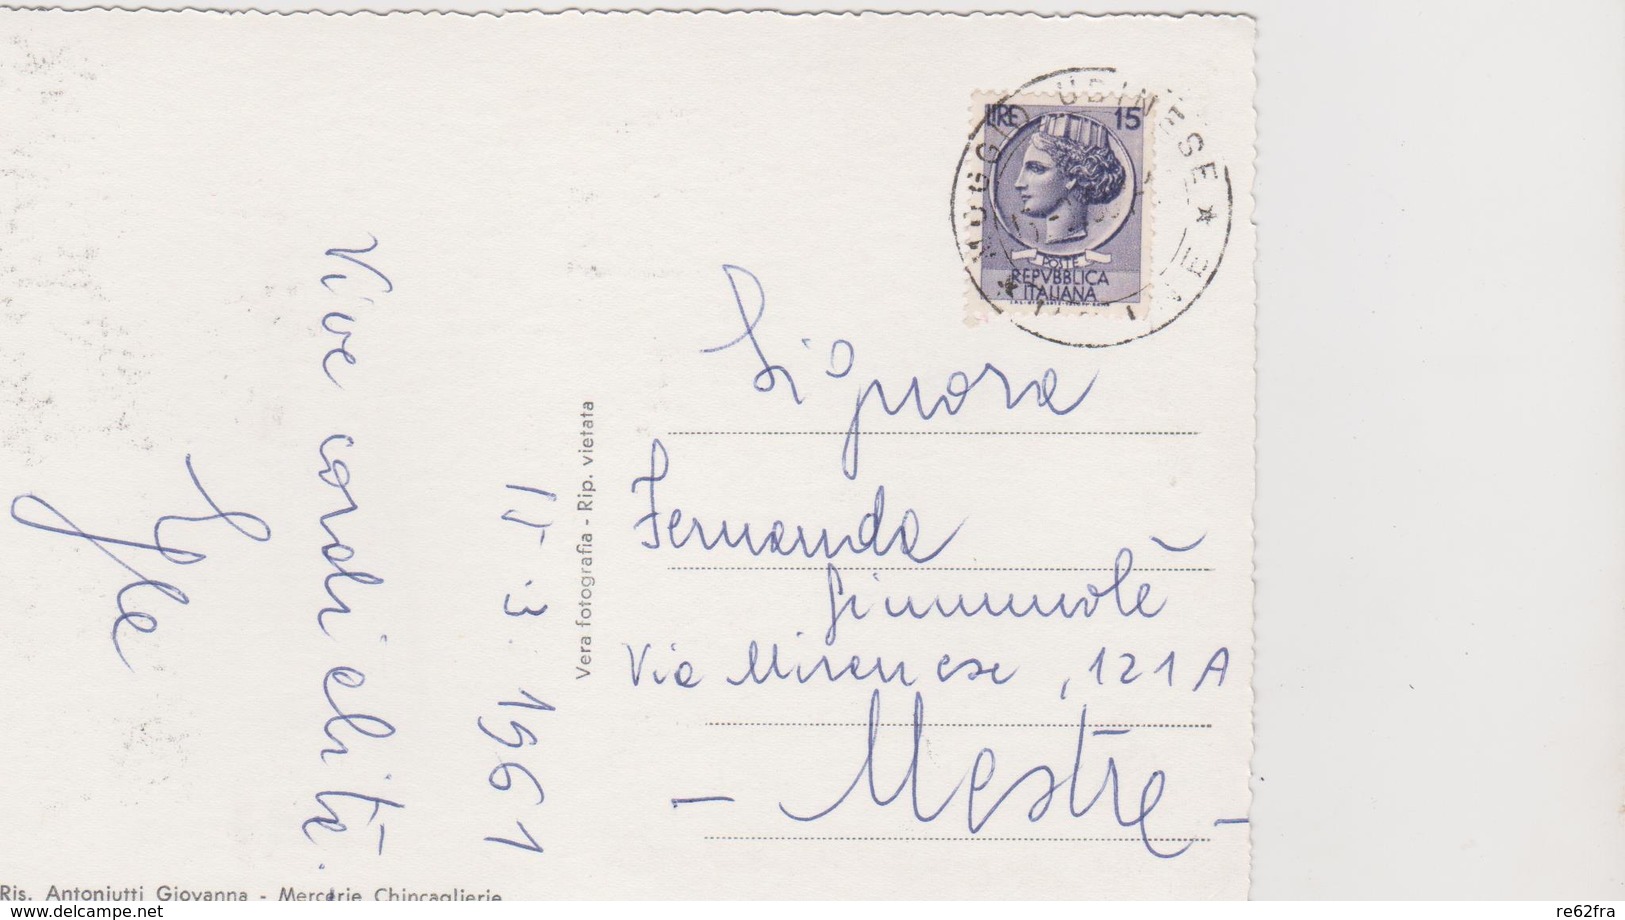 LIRE 15
POSTE
REPVBBLICA
ITALIANA
MOGGIO UDINESE
Signora
Fernanda
Via Miranese, 121 A
- Mestre -
Vera fotografia - Rip. vietata
15-3.1961
Vive cordialità.
Ris. Antoniutti Giovanna - Mercerie Chincaglierie
delcampe.net
re62fra